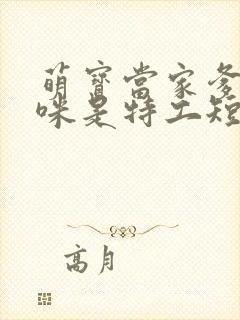 萌寶當家爹
咪是特工短
高月